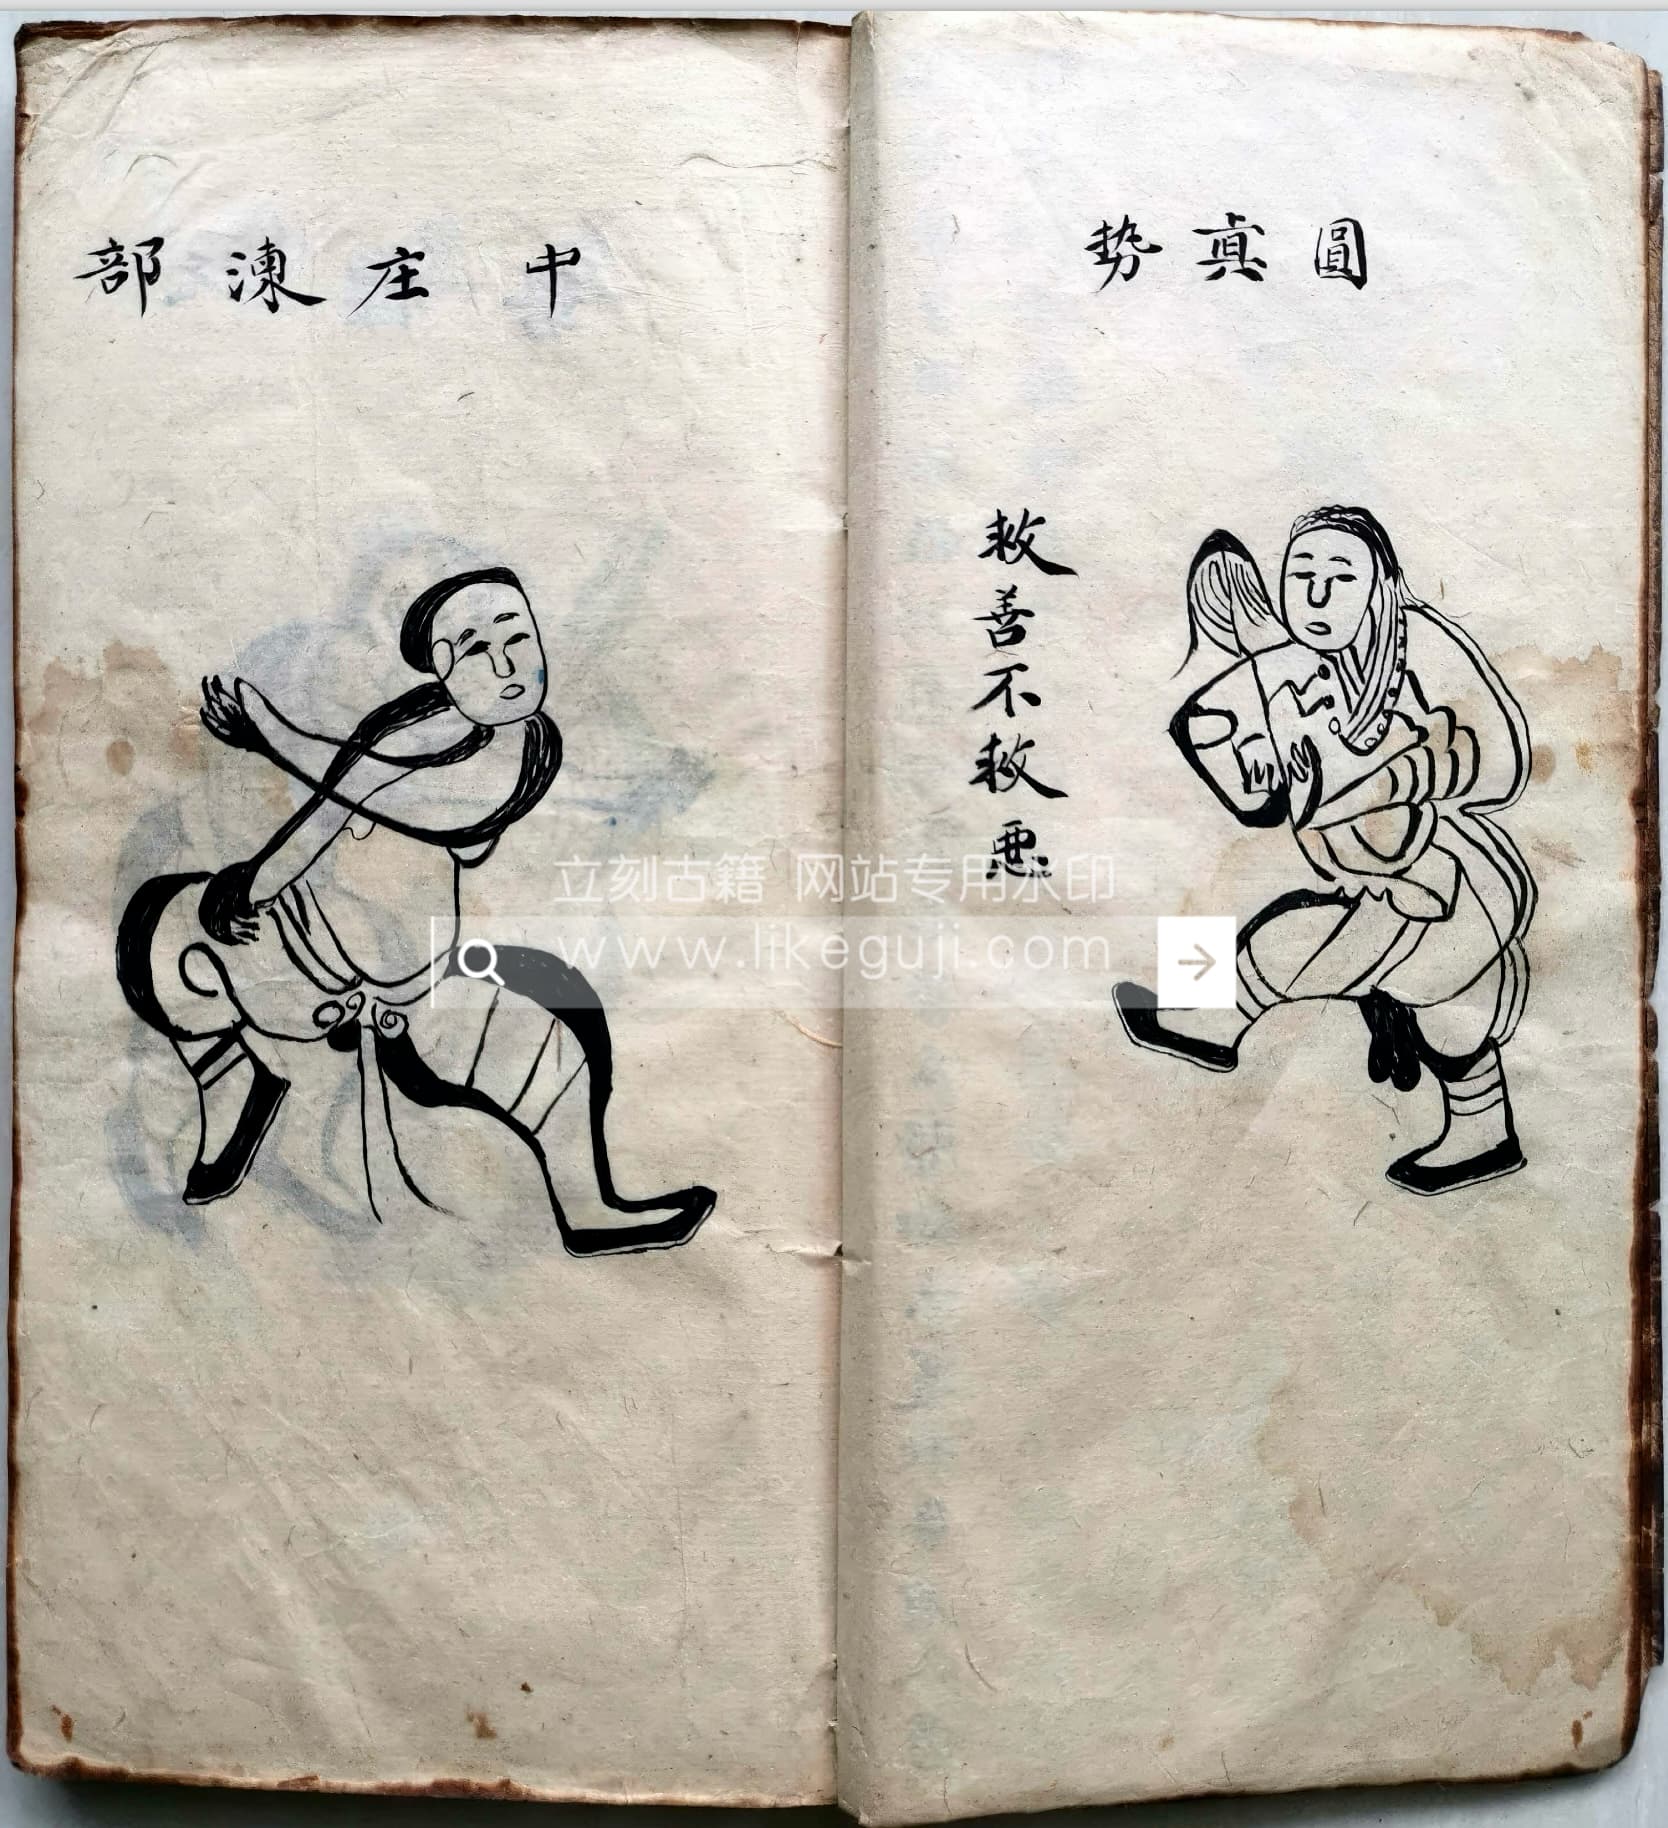 圓真勢
救善不救惡
中庄湅部
立刻古籍 网站专用水印
www.likeguji.com